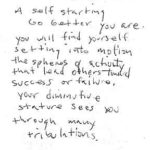 A self starting
Go Getter you are.
you will find yourself
setting into motion
the spheres of activity
that lead others toward
success or failure.
your diminutive
stature sees you
through many
tribulations.